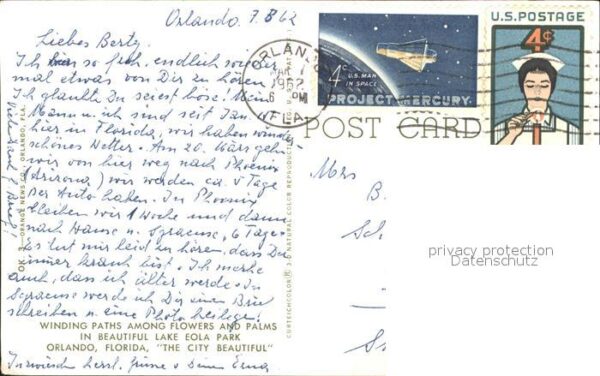 Orlando. 7.3.62
Liebes Berty.
Ich bin so froh, endlich wieder
mal etwas von Dir zu hören
Ich glaubte Du seiest böse. Mein
Mann u. ich sind seit Jan.
hier in Florida, wir haben wunder
schönes Wetter. Am 20. März gehn
wir von hier weg nach Phoenix
(Arizona) wir werden ca. 5 Tage
per Auto haben. In Phoenix
bleiben wir 1 Woche und dann
nach Hause n. Syracuse, 6 Tage
es tut mir leid zu hören, dass Du
immer krank bist. Ich merke
auch, dass ich älter werde. In
Syracuse werde ich Dir einen Brief
schreiben u. eine Photo beilege!
Inzwischen herzl. Grüsse v. Deiner Erna
Vielen Dank f. Brief!
WINDING PATHS AMONG FLOWERS AND PALMS
IN BEAUTIFUL LAKE EOLA PARK
ORLANDO, FLORIDA, "THE CITY BEAUTIFUL"
ORANGE NEWS CO., ORLANDO, FLA.
CURTEICHCOLOR® 3-D NATURAL COLOR REPRODUCTION
ORLANDO
1962
PM
FLA.
4¢
U.S. MAN
IN SPACE
PROJECT MERCURY
U.S. POSTAGE
4¢
POST CARD
Mrs
B
Sc
privacy protection
Datenschutz